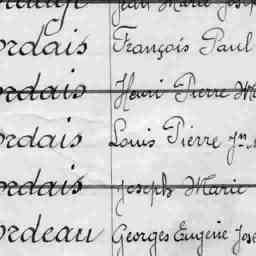 Jean Marie Joseph
ordais François Paul
ordais Henri Pierre Ma
ordais Louis Pierre Jn.
ordais Joseph Marie
ordeau Georges Eugène José